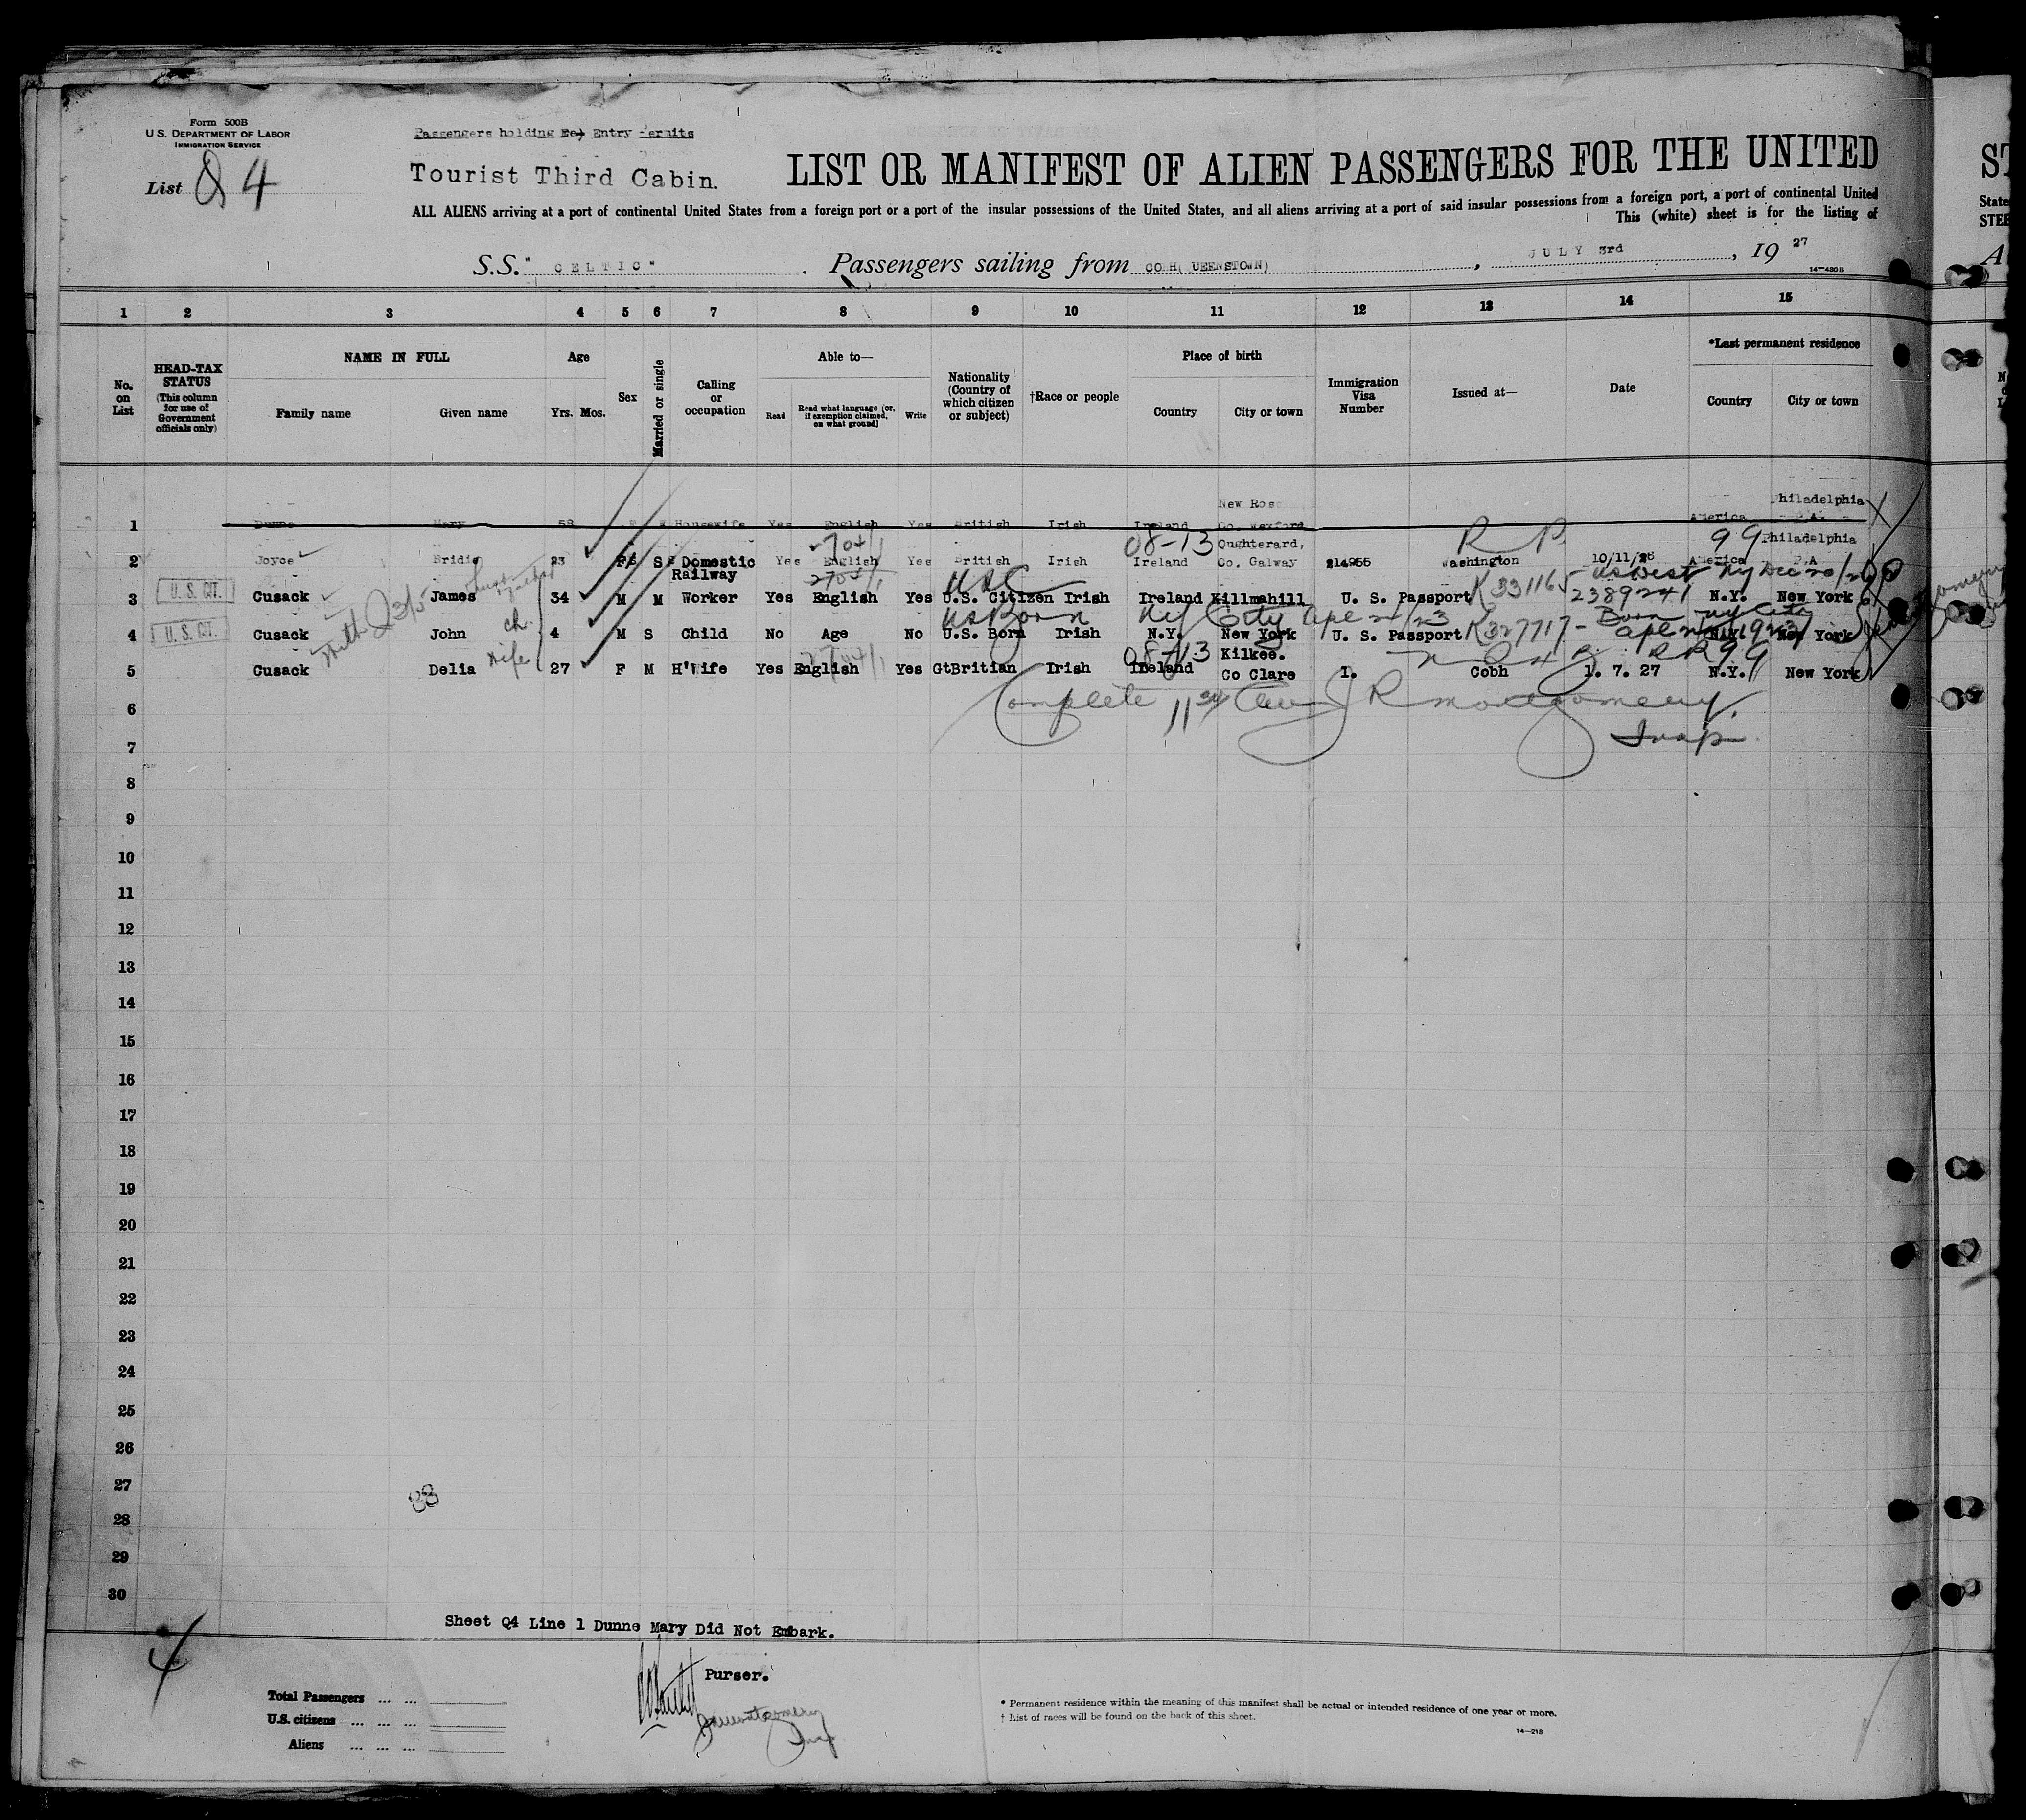 Form 500B
U.S. DEPARTMENT OF LABOR
IMMIGRATION SERVICE
List Q 4
Passengers holding Entry Permits
Tourist Third Cabin.
LIST OR MANIFEST OF ALIEN PASSENGERS FOR THE UNITED
ALL ALIENS arriving at a port of continental United States from a foreign port or a port of the insular possessions of the United States, and all aliens arriving at a port of said insular possessions from a foreign port, a port of continental United
This (white) sheet is for the listing of
S.S. "CELTIC" . Passengers sailing from COBH( UEENSTOWN) , JULY 3rd , 19 27
14—430B
1 2 3 4 5 6 7 8 9 10 11 12 13 14 15
No. on List
HEAD-TAX STATUS (This column for use of Government officials only)
NAME IN FULL
Family name Given name
Age
Yrs. Mos.
Sex
Married or single
Calling or occupation
Able to—
Read Read what language (or, if exemption claimed, on what ground) Write
Nationality (Country of which citizen or subject)
†Race or people
Place of birth
Country City or town
Immigration Visa Number
Issued at—
Date
*Last permanent residence
Country City or town
New Ross Philadelphia
1 Dunne Mary 58 F Housewife Yes English Yes British Irish Ireland Co. Wexford America P.A.
2704/1 08-13 Oughterard, R P. 99 Philadelphia
2 Joyce Bridie 23 F S Domestic Yes English Yes British Irish Ireland Co. Galway 214955 Washington 10/11/26 America P.A
Railway 2704/1 USC K331165 US West NY Dec 20/26
3 U.S. CIT. Cusack James 34 M M Worker Yes English Yes U.S. Citizen Irish Ireland Killmahill U. S. Passport 2389241 N.Y. New York
ch. US Born NY City Apl 21/23 K327717- Born NY City
4 U.S. CIT. Cusack John 4 M S Child No Age No U.S. Born Irish N.Y. New York U. S. Passport N.Y. New York
wife 2704/1 08-13 Kilkee. RR 99
5 Cusack Delia 27 F M H'Wife Yes English Yes GtBritian Irish Ireland Co Clare 1. Cobh 1. 7. 27 N.Y. New York
6 Complete R Montgomery.
7 Insp.
8
9
10
11
12
13
14
15
16
17
18
19
20
21
22
23
24
25
26
27
88
28
29
30
Sheet Q4 Line 1 Dunne Mary Did Not Embark.
4
Purser.
Montgomery
Insp
Total Passengers ... ...
U.S. citizens ... ... ...
Aliens ... ... ...
* Permanent residence within the meaning of this manifest shall be actual or intended residence of one year or more.
† List of races will be found on the back of this sheet.
14—213